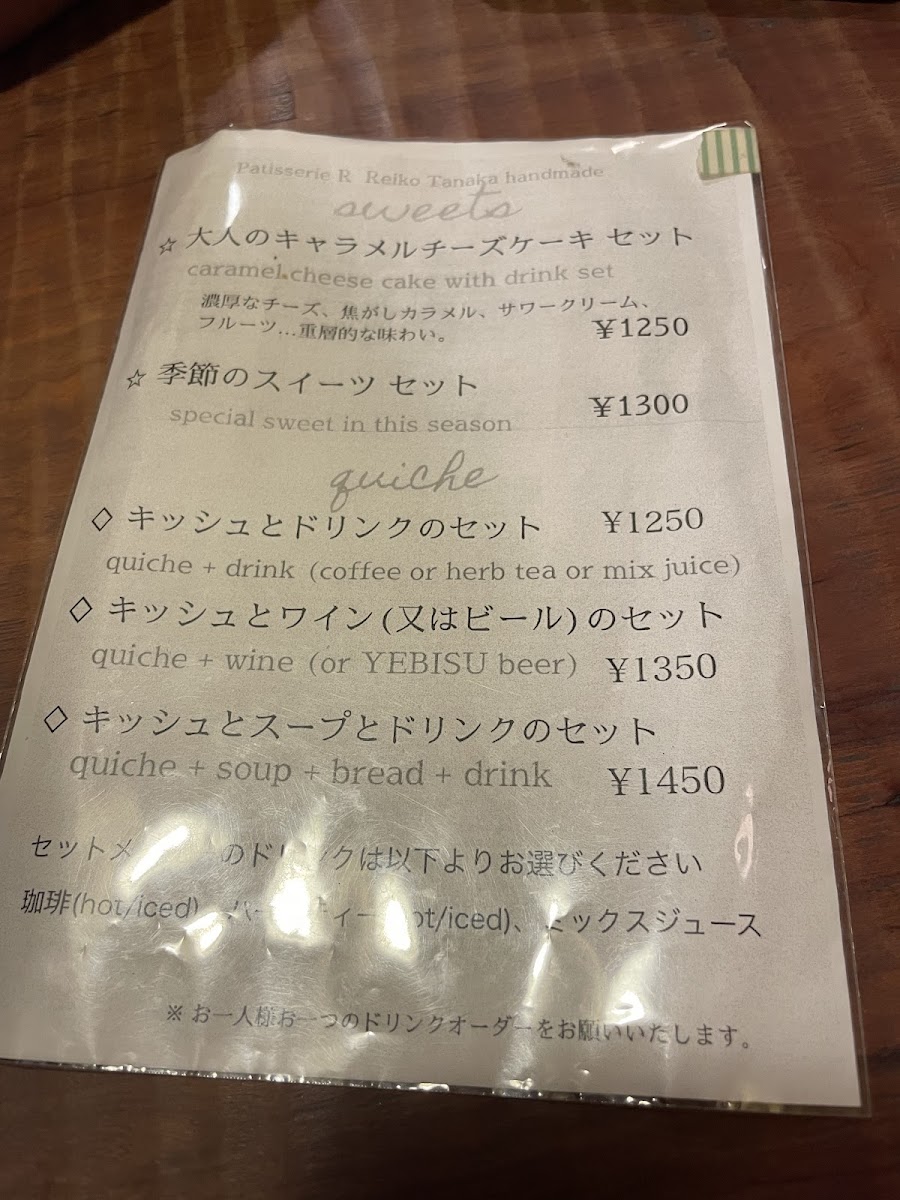 Patisserie R Reiko Tanaka handmade
sweets
☆ 大人のキャラメルチーズケーキ セット
caramel cheese cake with drink set
濃厚なチーズ、焦がしカラメル、サワークリーム、
フルーツ…重層的な味わい。 ¥1250
☆ 季節のスイーツ セット
¥1300
special sweet in this season
quiche
◇ キッシュとドリンクのセット ¥1250
quiche + drink (coffee or herb tea or mix juice)
◇ キッシュとワイン(又はビール)のセット
quiche + wine (or YEBISU beer) ¥1350
◇ キッシュとスープとドリンクのセット
quiche + soup + bread + drink ¥1450
セットメ のド クは以下よりお選びください
珈琲(hot/iced)、 ティー ot/iced)、ミックスジュース
※ お一人様お一つのドリンクオーダーをお願いいたします。